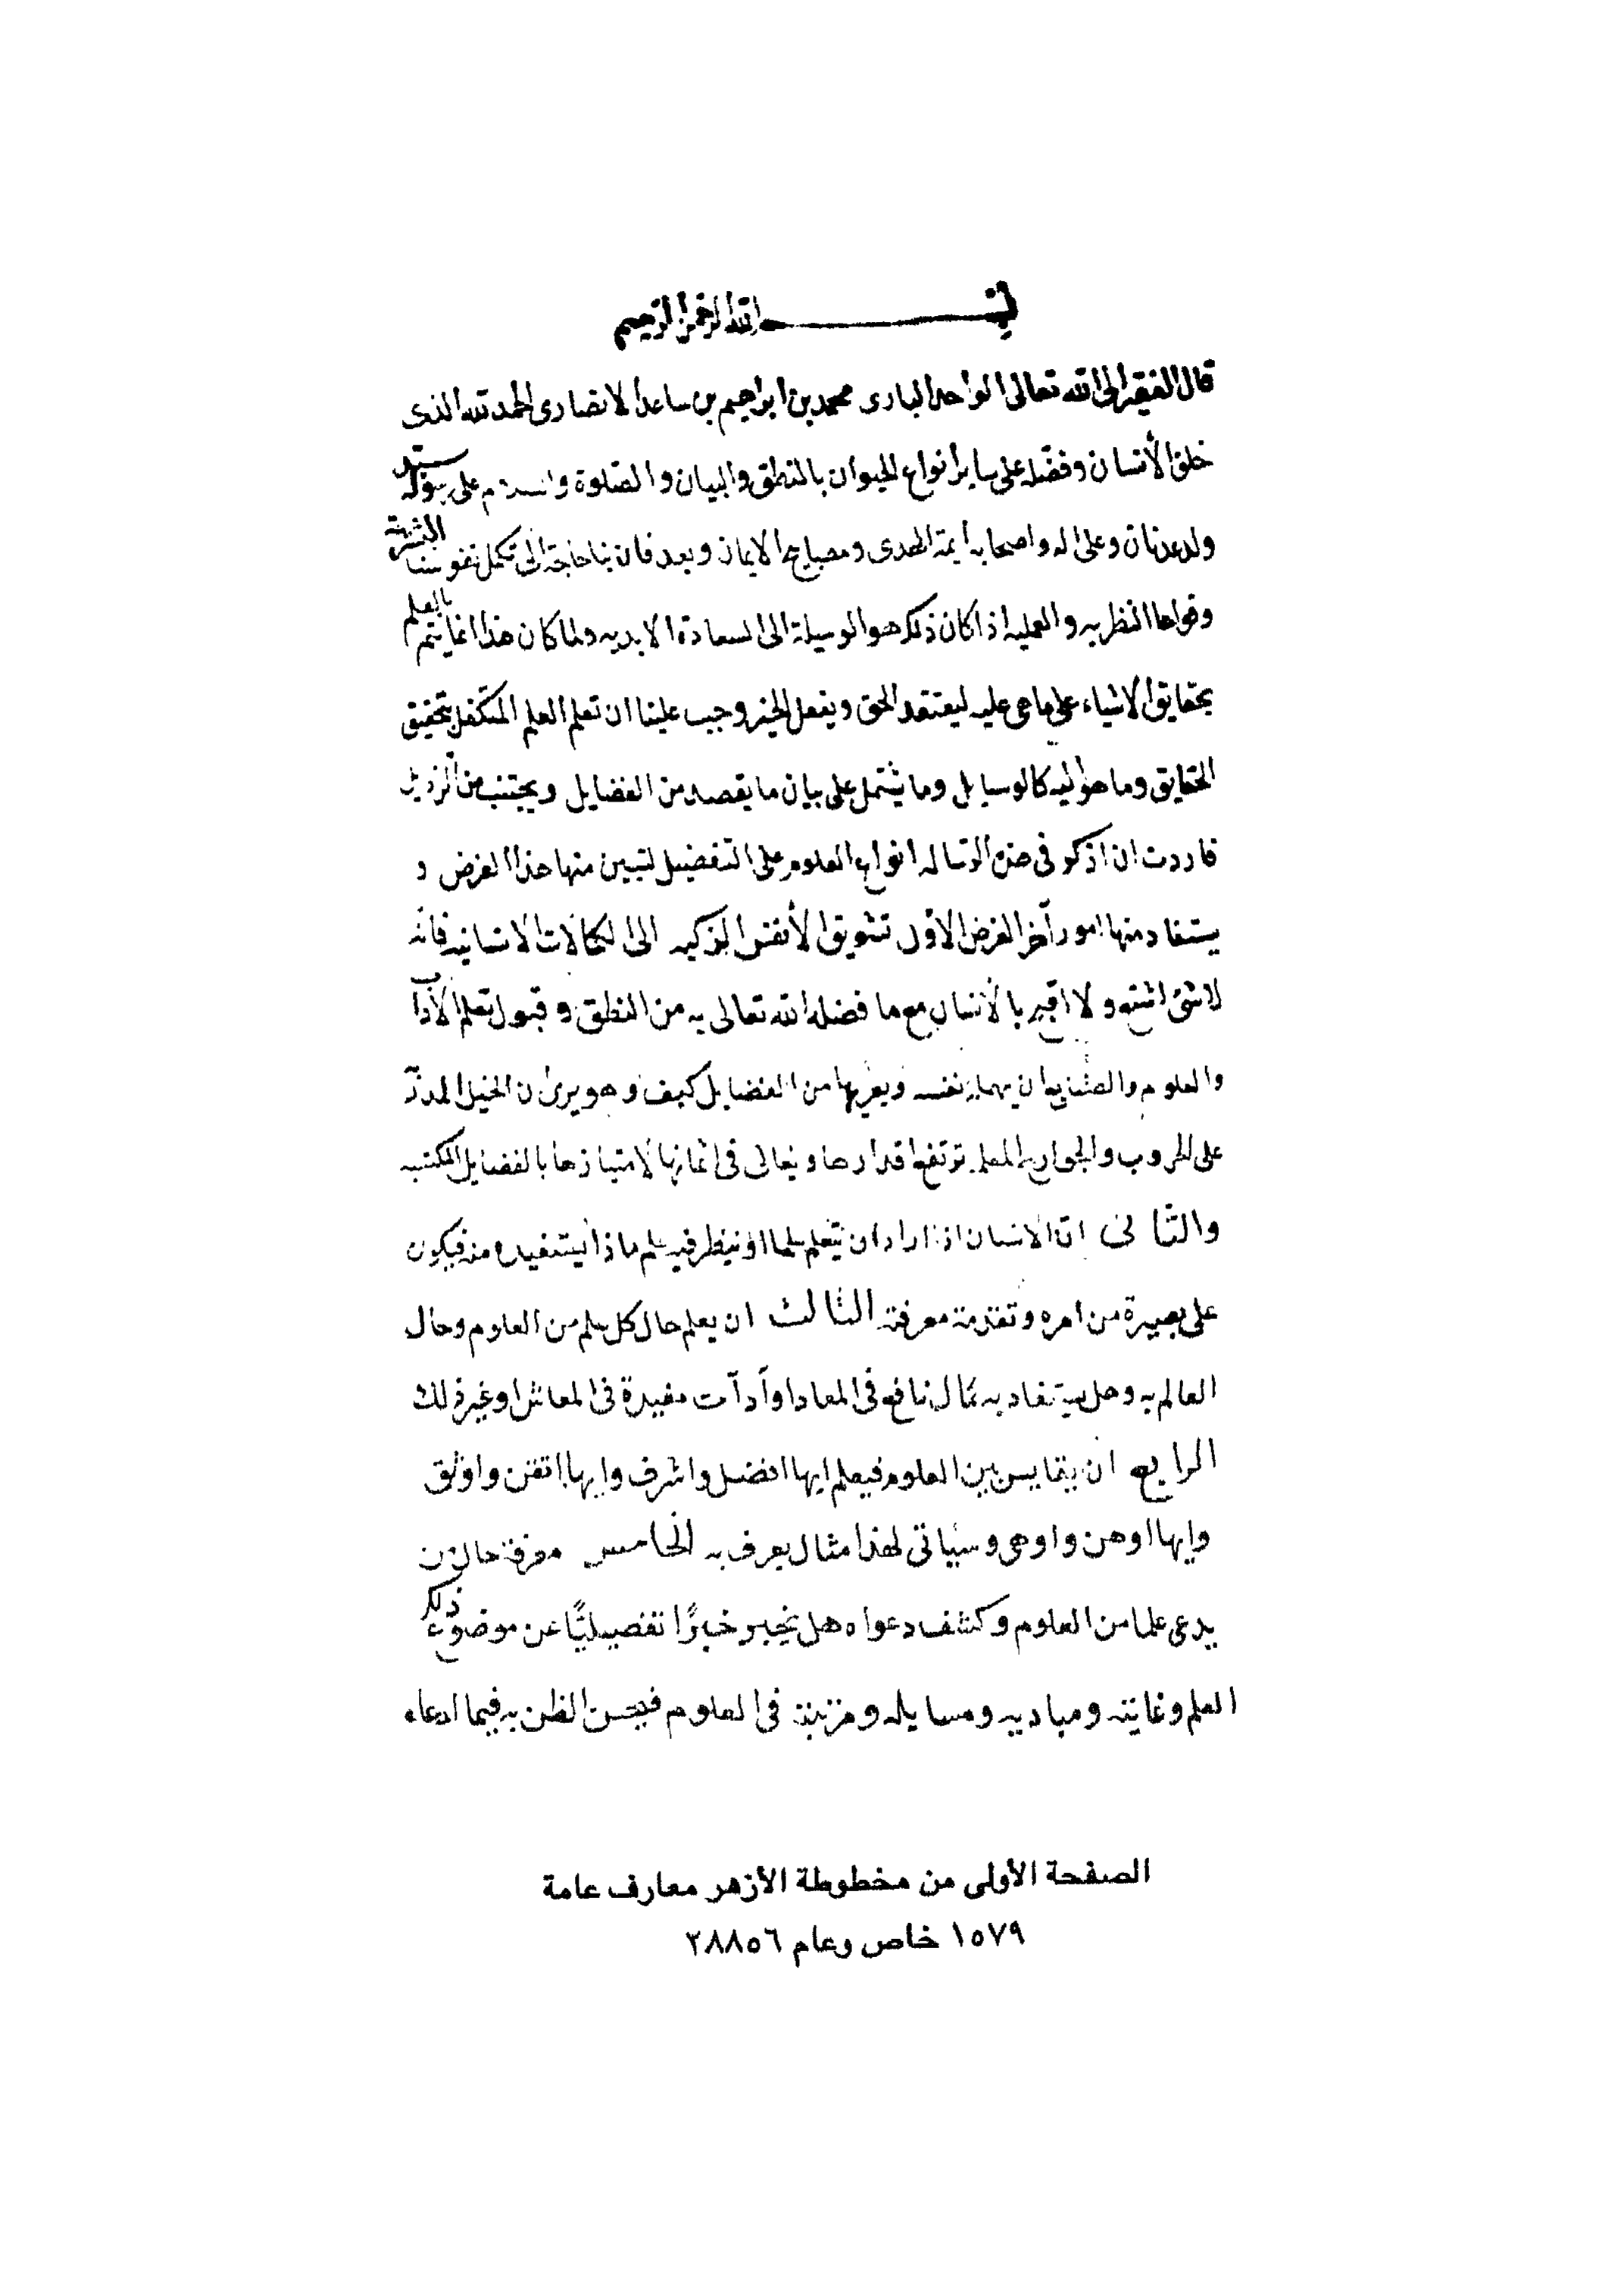 بسم الله الرحمن الرحيم
قال الفقير الى الله تعالى الواحد البارى محمد بن ابراهيم بن ساعد الانصارى الحمد لله الذى
خلق الأنسان وفضّله على ساير انواع الحيوان بالنطق والبيان والصّلوة والسلام على رسوله سيّد
ولد عدنان وعلى اله واصحابه أيمة الهدى ومصابيح الايمان وبعد فان بنا حاجة الى تكمل نفوسنا البشرية
وقواها النظريه والعمليه اذ كان ذلك هو الوسيلة الى السعادة الابديه ولما كان هذا انما يتم بالعلم
بحقايق الاشياء على ما هى عليه ليعتقد الحق ويفعل الخير وجب علينا ان نعلم العلم المتكفل بتحقيق
الحقايق وما هو اليه كالوسايل وما يشتمل على بيان ما يقصد من الفضايل ويجتنب من الرّذيل
فاردت ان اذكر فى هذه الرّساله انواع العلوم على التفضيل لتبين منها هذا الغرض و
يستفاد منها امور أخر الغرض الأوّل تشويق الأنفس الزكيه الى الكمالات الانسانيه فانّه
لا شئ اشنع ولا اقبح بالأنسان مع ما فضله الله تعالى به من النطق وقبول تعلم الآداب
والعلوم والصنايع ان يهمل نفسه ويعريها من الفضايل كيف وهو يرى ان الخيل المدرّبة
على الحروب والجوارح المعلمه ترتفع اقدارها ويغالى فى اثمانها لامتيازها بالفضايل المكتسبه
والثانى انّ الانسان اذا اراد ان يتعلم علما او ينظر فيه علم ماذا يستفيده منه فيكون
على بصيرة من امره وتقدمة معرفته الثالث ان يعلم حال كل علم من العلوم وحال
العالم به وهل يستفاد به كمال نافع فى المعاد او آدآت مفيدة فى المعاش او غير ذلك
الرابع ان يقايس بين العلوم فيعلم ايها افضل واشرف وايها اتقن واوثق
وايها اوهن واوهى وسياتى لهذا مثال يعرف به الخامس معرفة حال من
يدعى علما من العلوم وكشف دعواه هل يخبر خبرًا تفصيليًّا عن موضوع ذلك
العلم وغايته ومباديه ومسايله ومرتبته فى العلوم فيحسن الظن به فيما ادعاه
الصفحة الأولى من مخطوطة الأزهر معارف عامة
١٥٧٩ خاص وعام ٢٨٨٥٦